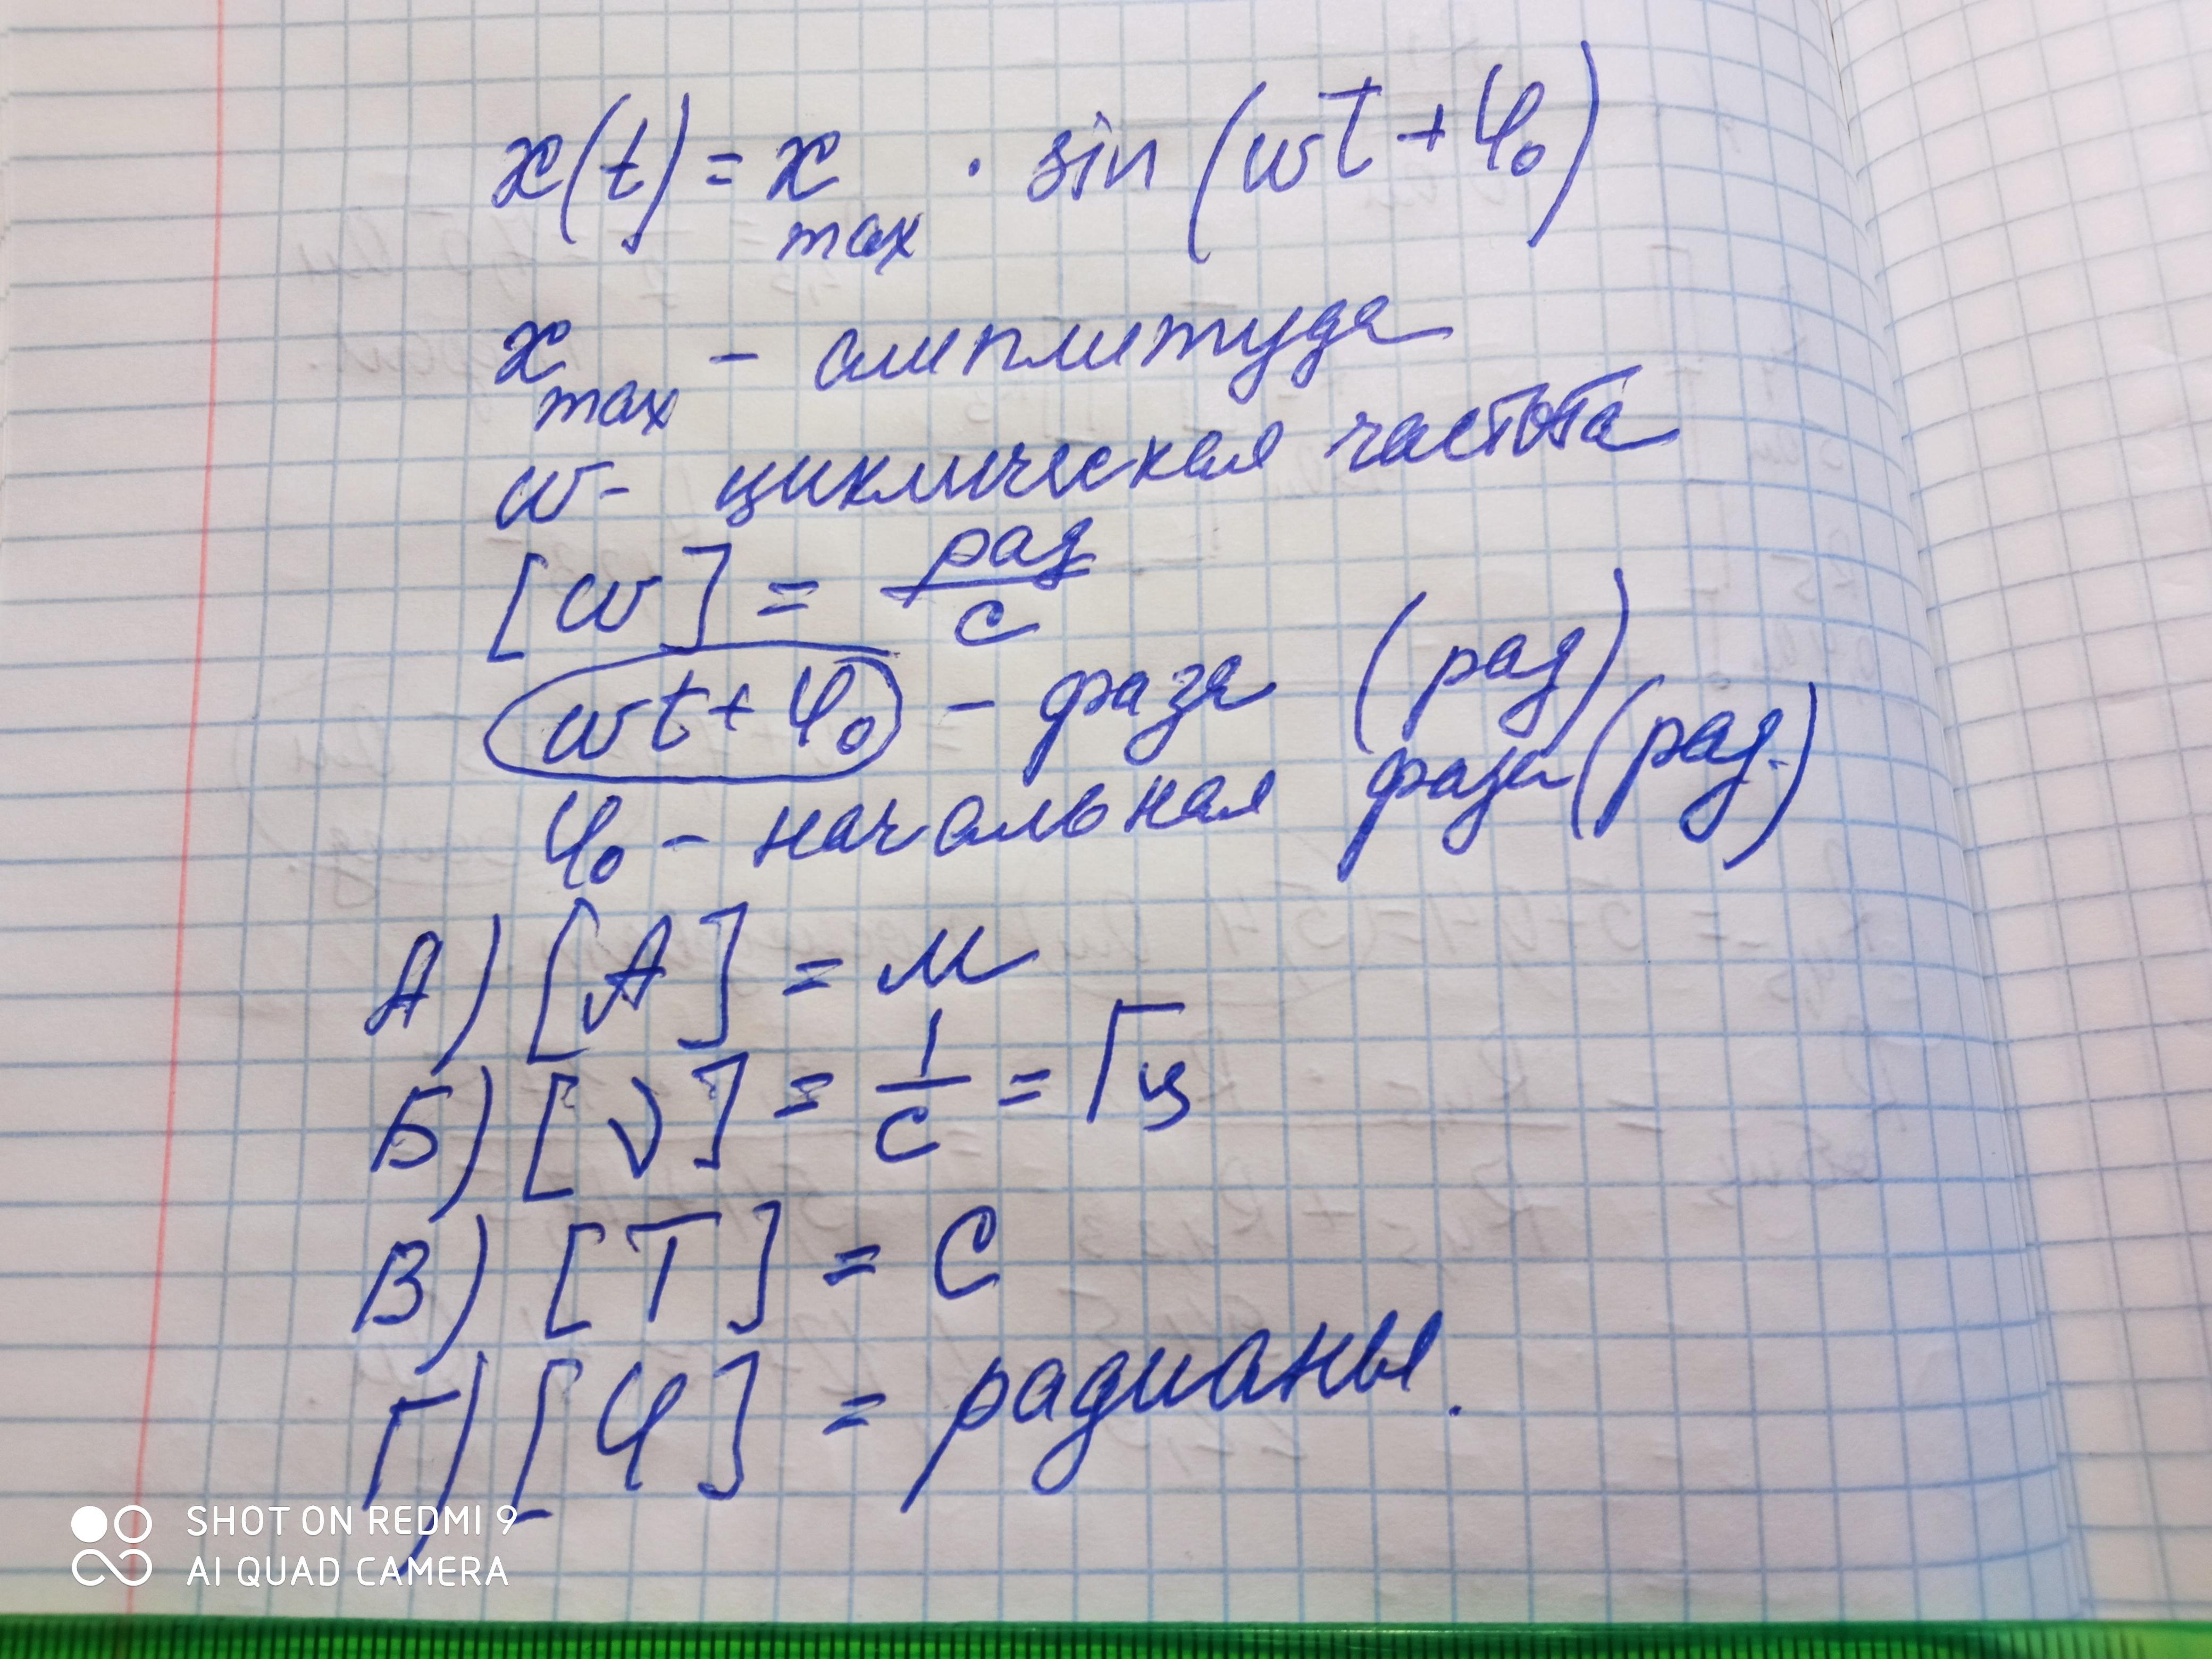 x(t) = x max · sin (ωt + φ₀)
x max – амплитуда
ω – циклическая частота
[ω] = рад/с
ωt + φ₀ – фаза (рад)
φ₀ – начальная фаза (рад.)
А) [A] = м
Б) [ν] = 1/с = Гц
В) [T] = с
Г) [φ] = радианы.
SHOT ON REDMI 9
AI QUAD CAMERA